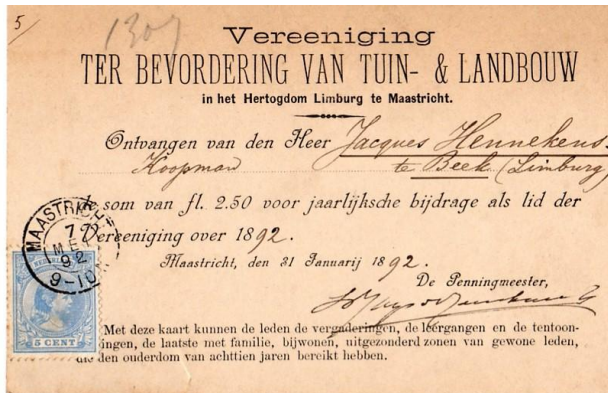 5
1307
Vereeniging
TER BEVORDERING VAN TUIN- & LANDBOUW
in het Hertogdom Limburg te Maastricht.
Ontvangen van den Heer Jacques Hennekens.
Koopman te Beek (Limburg)
de som van fl. 2.50 voor jaarlijksche bijdrage als lid der
Vereeniging over 1892.
Maastricht, den 31 Januarij 1892.
De Penningmeester,
MAASTRICHT
7
ME
92
9-10
5 CENT
Met deze kaart kunnen de leden de vergaderingen, de leergangen en de tentoon-
ingen, de laatste met familie, bijwonen, uitgezonderd zonen van gewone leden,
die den ouderdom van achttien jaren bereikt hebben.